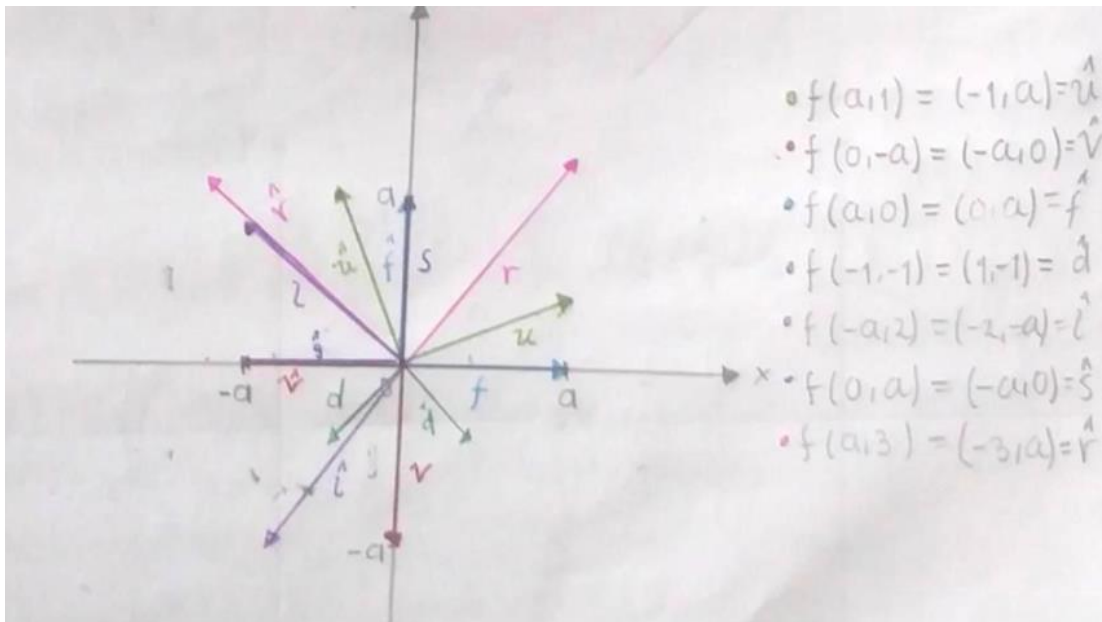 a
û
f̂
s
r̂
r
l
u
ŝ
x
-a
v̂
d
d̂
f
a
l̂
v
-a
• f(a,1) = (-1,a)=û
• f(0,-a) = (-a,0)=v̂
• f(a,0) = (0,a)=f̂
• f(-1,-1) = (1,-1)= d̂
• f(-a,2) = (-2,-a)=l̂
• f(0,a) = (-a,0)=ŝ
• f(a,3) = (-3,a)=r̂